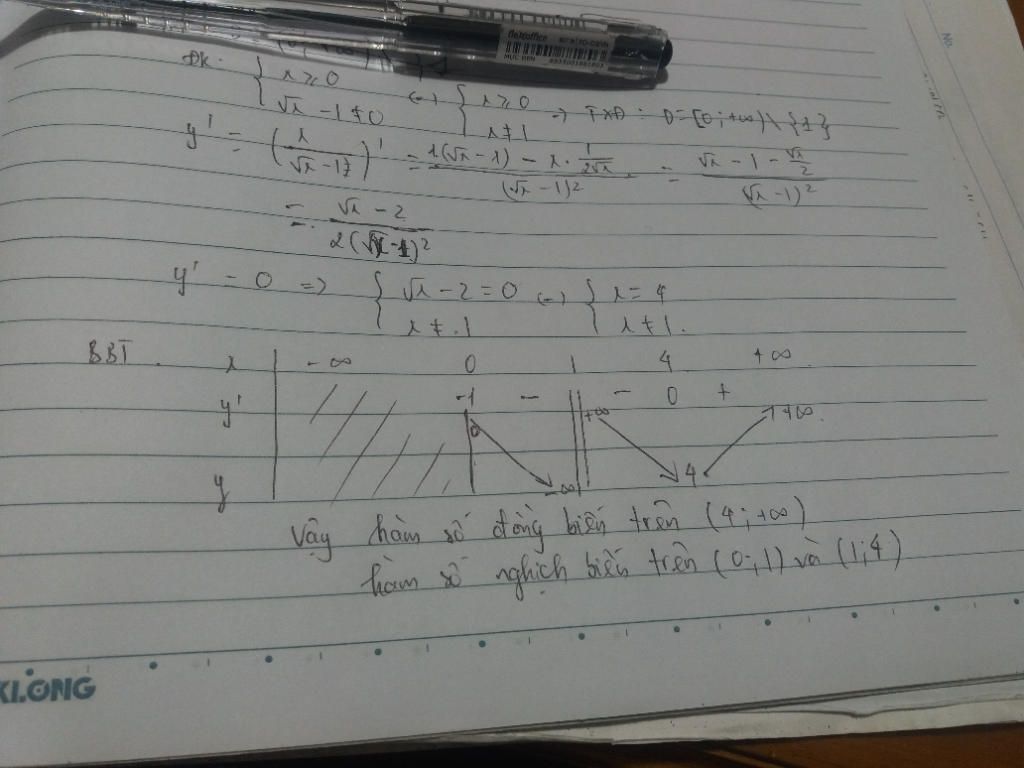 flexoffice
MỰC ĐEN
No.
(0; +∞) \ {1}
ĐK: { x ≥ 0 ; √x − 1 ≠ 0 ⇔ { x ≥ 0 ; x ≠ 1 → TXĐ: D = [0; +∞) \ {1}
y' = (x / (√x − 1))' = (1(√x − 1) − x · 1/(2√x)) / (√x − 1)² = (√x − 1 − √x/2) / (√x − 1)²
= (√x − 2) / (2(√x − 1)²)
y' = 0 => { √x − 2 = 0 ; x ≠ 1 ⇔ { x = 4 ; x ≠ 1.
BBT. x −∞ 0 1 4 +∞
y' −1 − || − 0 +
0 −∞ +∞ 4 +∞
y
Vậy hàm số đồng biến trên (4; +∞)
hàm số nghịch biến trên (0; 1) và (1; 4)
KLONG